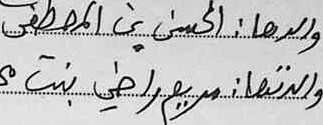 والدها: الحسن بن المصطفى
والدتها: مريم راضي بنت